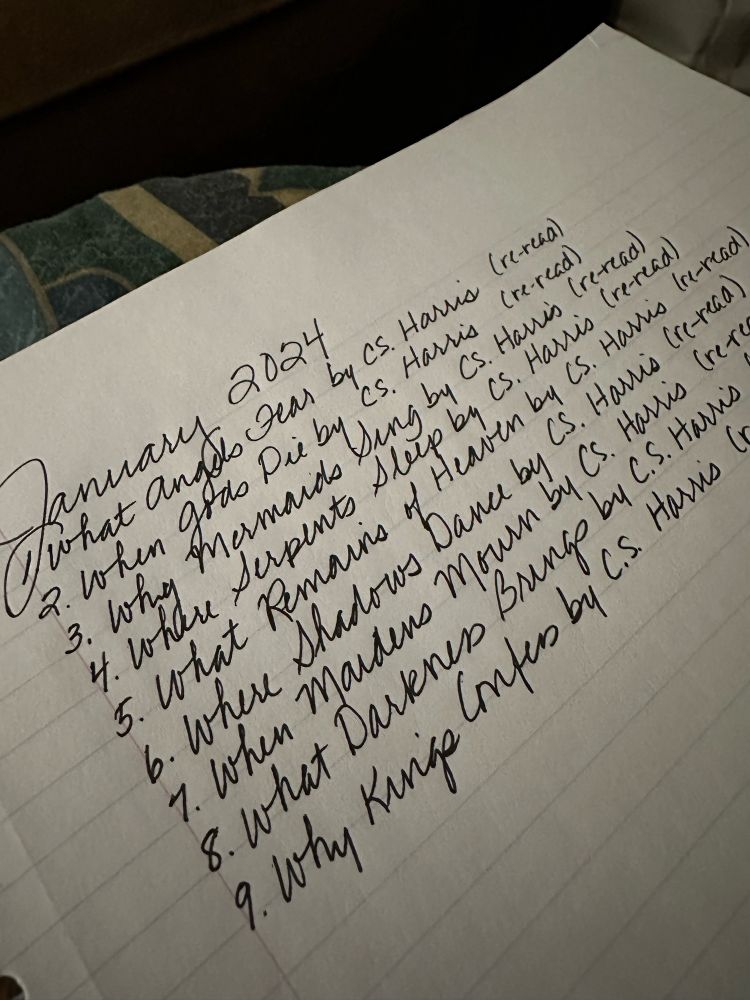 January 2024
1. What Angels Fear by C.S. Harris (re-read)
2. When Gods Die by C.S. Harris (re-read)
3. Why Mermaids Sing by C.S. Harris (re-read)
4. Where Serpents Sleep by C.S. Harris (re-read)
5. What Remains of Heaven by C.S. Harris (re-read)
6. Where Shadows Dance by C.S. Harris (re-read)
7. When Maidens Mourn by C.S. Harris (re-rea
8. What Darkness Brings by C.S. Harris (
9. Why Kings Confess by C.S. Harris (r